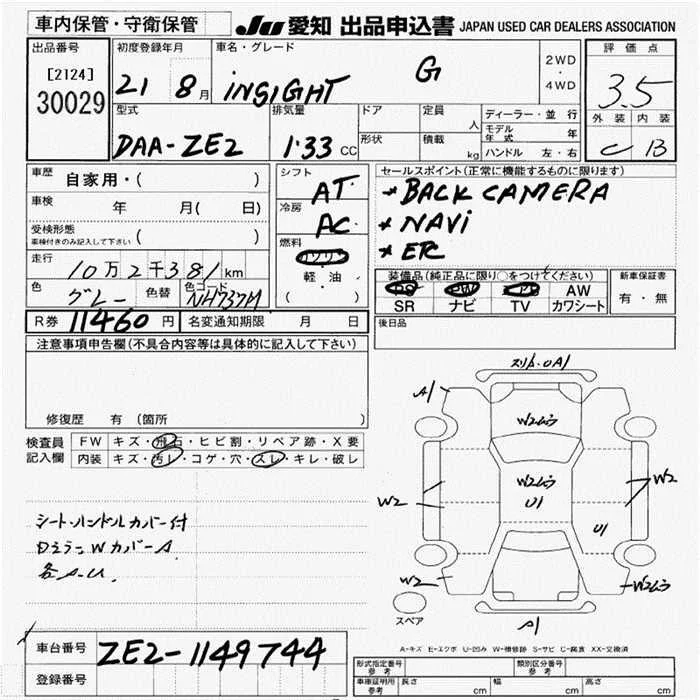 車内保管・守衛保管 JU 愛知 出品申込書 JAPAN USED CAR DEALERS ASSOCIATION
出品番号 初度登録年月 車名・グレード 2WD・4WD 評価点
[2124] 21 8月 INSIGHT G 3.5
30029 外装 内装
C B
型式 排気量 ドア 定員 人 ディーラー・並行
モデル年式 年
DAA-ZE2 1.33 CC 形状 積載 kg ハンドル 左・右
車歴 自家用・( ) シフト AT セールスポイント(正常に機能するものに限ります)
車検 年 月( 日) 冷房 AC * BACK CAMERA
受検形態 ( ) * NAVi
車検付きのみ記入して下さい 燃料 * ETC
走行 10万2千381km ガソリン 装備品(純正品に限り○をつけてください) 新車保証書
色 グレー 色替 色コード NH737M 軽・油 PS PW AW 有・無
( ) SR ナビ TV カワシート
R券 11460円 名変通知期限 月 日 後日品
注意事項申告欄(不具合内容等は具体的に記入して下さい)
修復歴 有 (箇所 )
検査員 FW キズ・飛石・ヒビ割・リペア跡・X要
記入欄 内装 キズ・汚レ・コゲ・穴・スレ・キレ・破レ
シート・ハンドルカバー付
DミラーWカバーA
各A.U.
A1
A1
W2ムラ
W2ムラ
U1
W2
W2
U1
W2
W2ムラ
A1
スペア
A-キズ E-エクボ U-凹み W-補修跡 S-サビ C-腐食 XX-交換済
車台番号 ZE2-1149744
登録番号
形式指定番号 参考 類別区分番号 参考
車庫証明用 参考 長さ cm 幅 cm 高さ cm